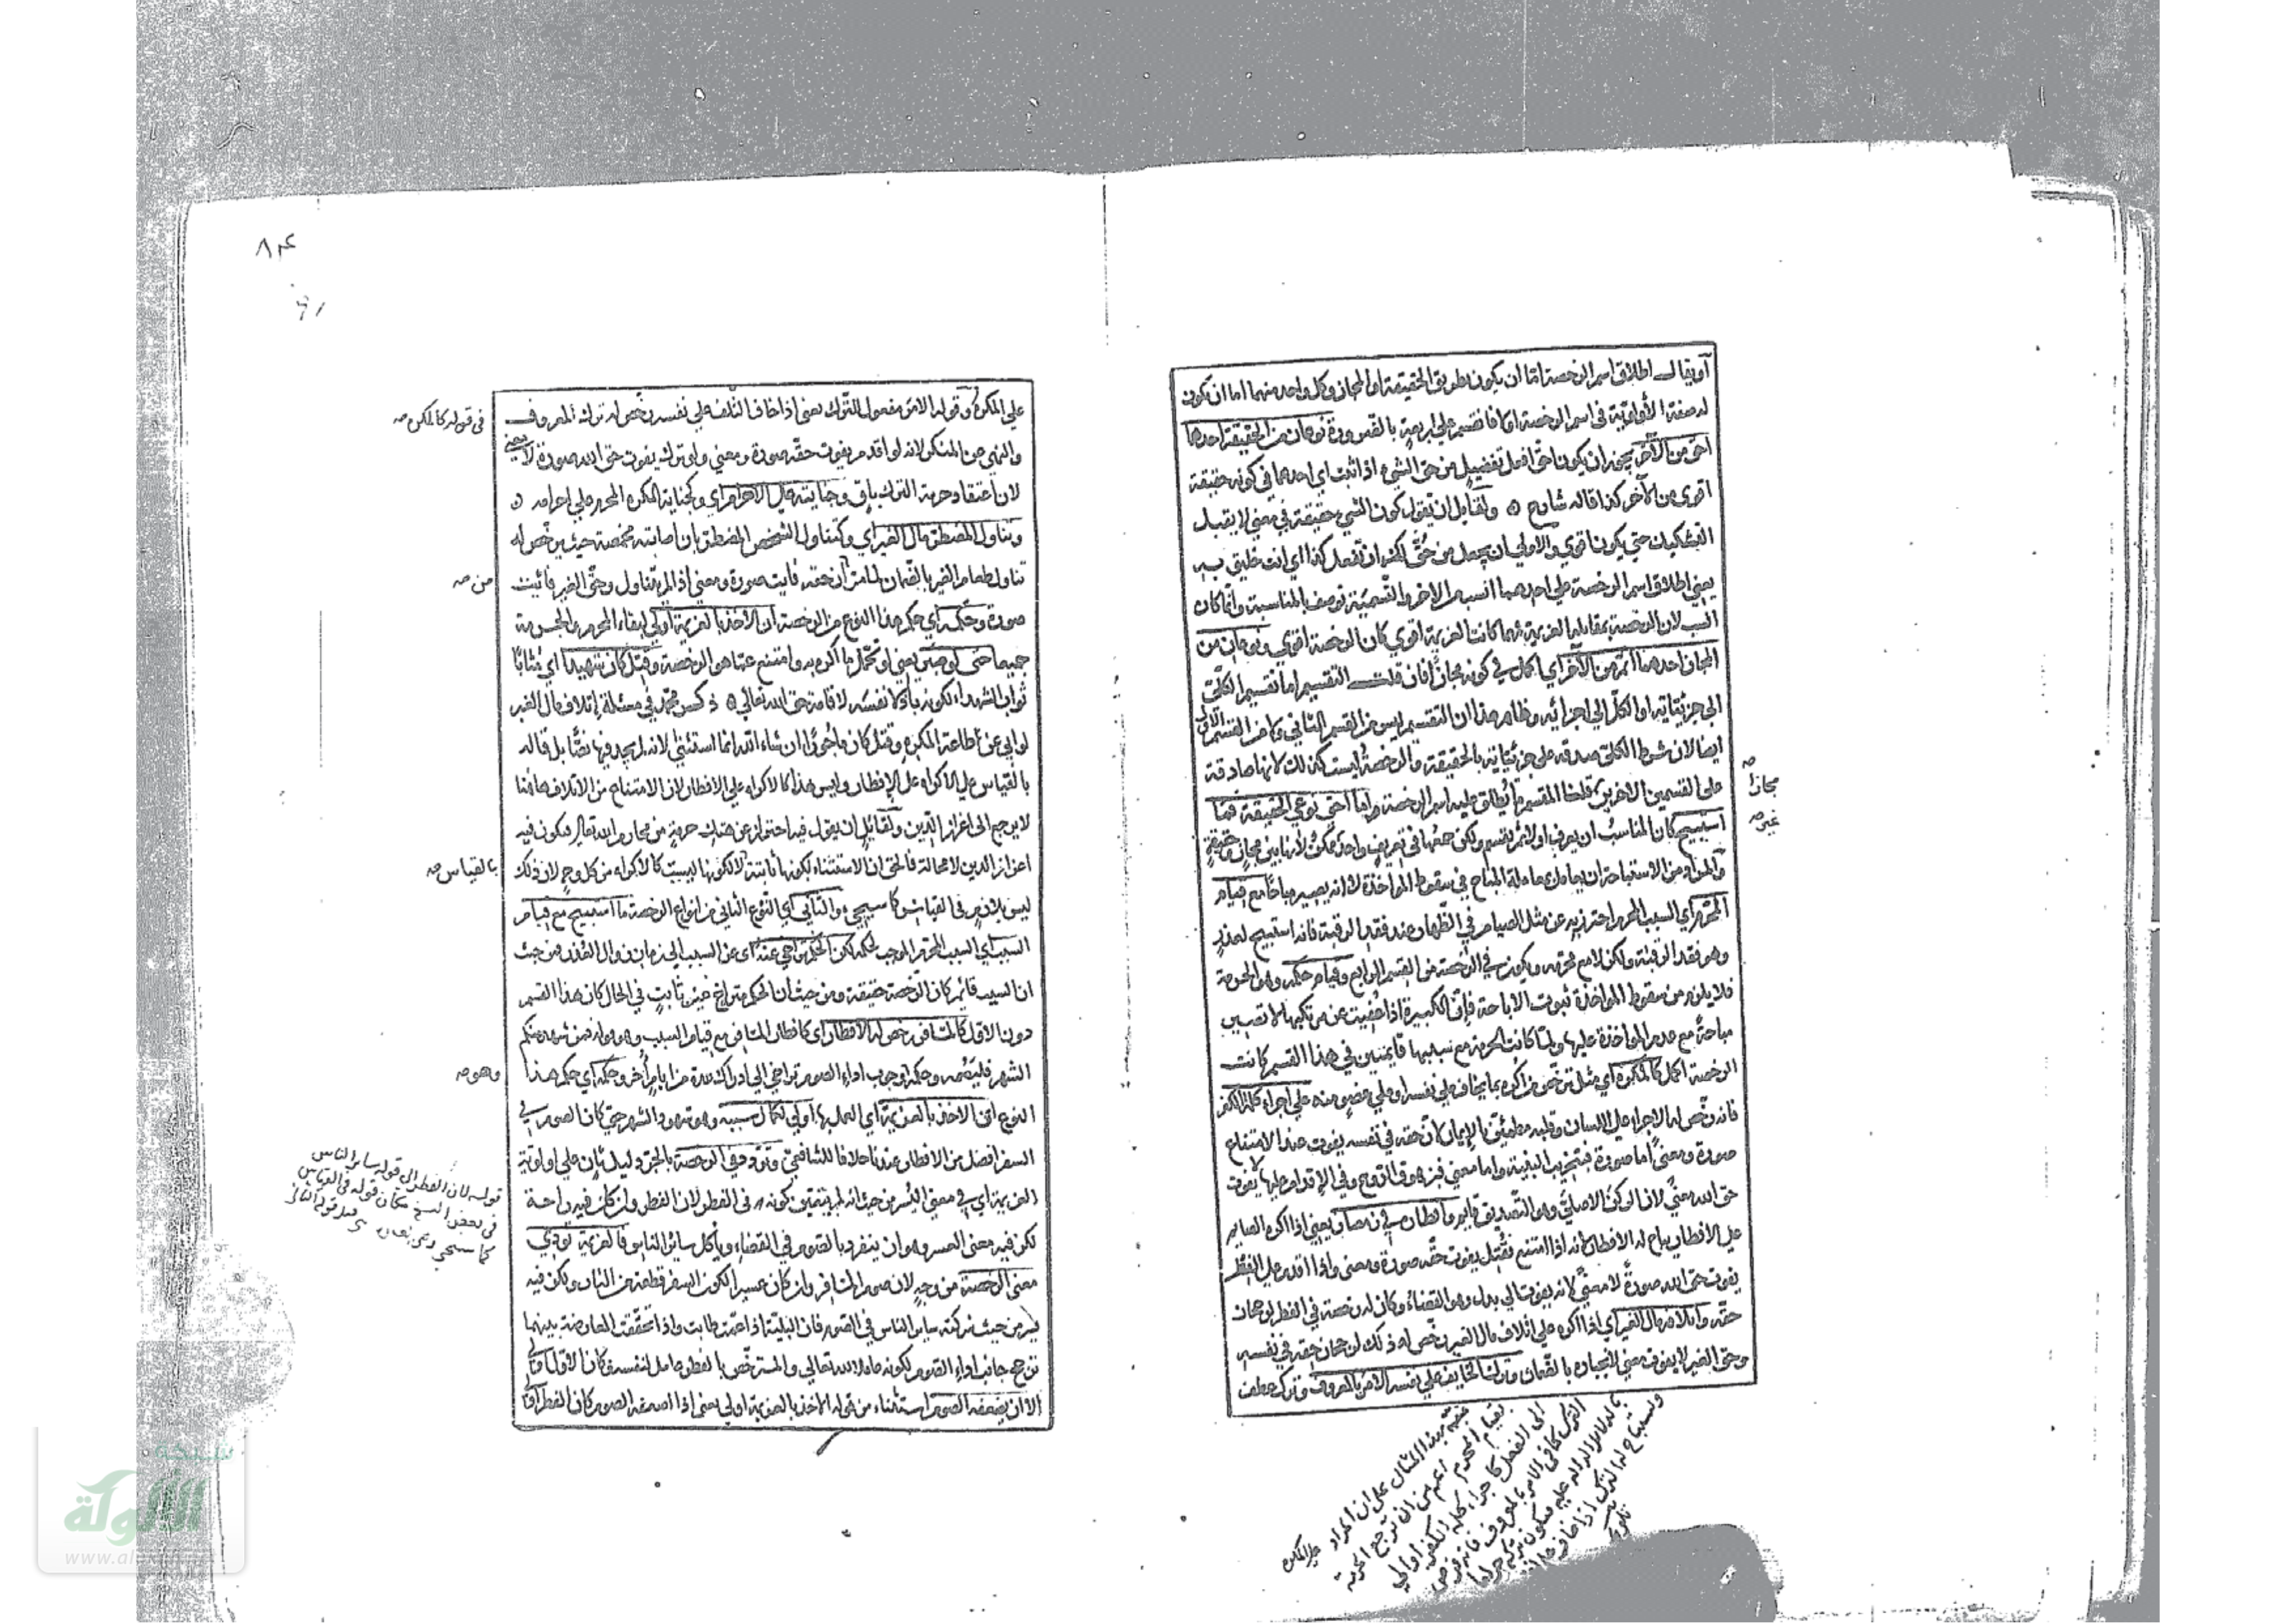 أو يقال إطلاق اسم الرخصة اما ان يكون بطريق الحقيقة او المجاز وكل واحد منهما اما ان يكون
له صفة الأولوية في اسم الرخصة اولا فانقسم على اربعة بالضرورة نوعان من الحقيقة احدهما
احق من الآخر يجوز ان يكون احق افعل تفضيل من حق الشيء اذا ثبت اي احدهما في كونه حقيقة
اقوى من الآخر كذا قاله شارح ولقايل ان يقول كون الشيء حقيقة في معنى لا يقبل
التشكيك حتى يكون اقوى والاولى ان يجعل من حق لك ان تفعل كذا اي انت خليق به
يعني اطلاق اسم الرخصة على احدهما انسب من الاخر والتسمية توصف بالمناسبة وانما كان
انسب لان الرخصة بمقابلة العزيمة فمهما كانت العزيمة اقوى كان الرخصة اقوى ونوعان من
المجاز احدهما اتم من الآخر اي اكمل في كونه مجازا فان قلت التقسيم اما تقسيم الكلي
الى جزئياته او الكل الى اجزائه وظاهر هذا ان التقسيم ليس من القسم الثاني ولا من القسم الاول
ايضا لان شرط الكلي صدقه على جزئياته بالحقيقة والرخصة ليست كذلك لانها صادقة
على القسمين الاخرين قلت المقسم ما يطلق عليه اسم الرخصة واما احق نوعي الحقيقة فما
استبيح كان المناسب ان يعرف اولا ثم يقسم ولكن جمعها في تعريف واحد غير ممكن لأنها بين مجاز وحقيقة
والمراد من الاستباحة ان يعامل معاملة المباح في سقوط المواخذة لا انه يصير مباحا مع قيام
المحرم اي السبب المحرم احترز به عن مثل الصيام في الظهار عند فقد الرقبة فانه استبيح لعذر
وهو فقد الرقبة ولكن لا مع محرمه ويكون في الرخصة من القسم الرابع وقيام حكمه وهو الحرمة
فلا يلزم من سقوط المواخذة ثبوت الاباحة فان الكبيرة اذا عفيت عن مرتكبها لا تصير
مباحة مع عدم المواخذة عليها ولما كانت الحرمة مع سببها قائمتين في هذا القسم كانت
الرخصة اكمل كالمكره اي مثل ترخص من اكره بما يخاف على نفسه او على عضو منه على اجراء كلمة الكفر
فانه رخص له الاجراء على اللسان وقلبه مطمئن بالإيمان لأن حقه في نفسه يفوت عند الامتناع
صورة ومعنى اما صورة فبتخريب البنية واما معنى فبزهوق الروح وفي الإقدام عليها لا يفوت
حق الله معنى لان الركن الاصلي وهو التصديق قايم وافطاره في رمضان يعني اذا اكره الصايم
على الافطار يباح له الافطار لانه اذا امتنع فقتل يفوت حقه صورة ومعنى واذا اقدم على الفطر
يفوت حق الله صورة لا معنى لانه يفوت الى بدل وهو القضاء وكان له رخصة في الفطر لرجحان
حقه واتلافه مال الغير اي اذا اكره على اتلاف مال الغير رخص له ذلك لرجحان حقه في نفسه
وحق الغير لا يفوت معنى لانجباره بالضمان وترك الخايف على نفسه الامر بالمعروف وترك عطف
مجازا صه
غير صه
على المكره
الى الفطر كاجراء كلمة الكفر اولى
٨٤
على المكره وقوله الامر مفعول الترك يعني اذا خاف التلف على نفسه رخص له ترك المعروف
والنهي عن المنكر لانه لو اقدم يفوت حقه صورة ومعنى ولو ترك يفوت حق الله صورة لا معنى
لان اعتقاد حرمة الترك باق وجنايته على الاحرام اي وكجناية المكره المحرم على احرامه
وتناول المضطر مال الغير اي وكتناول الشخص المضطر بان اصابته مخمصة حيث يرخص له
تناول طعام الغير بالضمان لما مر ان حقه فايت صورة ومعنى اذا لم يتناول وحق الغير فائت
صورة وحكمه اي حكم هذا النوع من الرخصة ان الاخذ بالعزيمة اولى لبقاء المحرم والحرمة
جميعا حتى لو صبر يعني لو تحمل ما اكره به وامتنع عما هو الرخصة وقتل كان شهيدا اي مثابا
ثواب الشهداء لكونه باذلا نفسه لاقامة حق الله تعالى ذكر محمد في مسئلة إتلاف مال الغير
لو ابى عن اطاعة المكره وقتل كان ماجورا ان شاء الله انما استثنى لانه لم يجد فيها نصا بل قاله
بالقياس على الاكراه على الإفطار وليس هذا كالاكراه على الافطار لان الامتناع من الاتلاف هاهنا
لا يرجع الى اعزاز الدين ولقائل ان يقول فيه احتراز عن هتك حرمة من محارم الله تعالى فيكون فيه
اعزاز الدين لا محالة فالحق ان الاستثناء لكونها ثابتة لا لكونها ليست كالاكراه من كل وجه لان ذلك
ليس بلازم في القياس كما سيجيء والثاني اي النوع الثاني من انواع الرخصة ما استبيح مع قيام
السبب اي السبب المحرم الموجب لحكمه لكن الحكم تراخى عنه اى عن السبب الى زمان زوال العذر فمن حيث
ان السبب قائم كان الرخصة حقيقة ومن حيث ان الحكم متراخ غير ثابت في الحال كان هذا القسم
دون الاول كالمسافر رخص له الافطار اى كافطار المسافر مع قيام السبب وهو قوله فمن شهد منكم
الشهر فليصمه وحكمه وجوب اداء الصوم تراخى الى ادراك عدة من ايام أخر وحكمه اي حكم هذا
النوع ان الاخذ بالعزيمة اي العمل بها اولى لكمال سببه وهو شهود الشهر حتى كان الصوم في
السفر افضل من الافطار عندنا خلافا للشافعي وتردد في الرخصة بالجر دليل ثان على اولوية
العزيمة اي في معنى اليسر من حيث انه لم يتعين كونه في الفطر لان الفطر وان كان فيه راحة
لكن فيه معنى العسر وهو ان ينفرد بالصوم في القضاء ويأكل سائر الناس فالعزيمة تؤدي
معنى الرخصة من وجه لان صوم المسافر وان كان عسيرا لكون السفر قطعة من النار ولكن فيه
يسر من حيث شركة ساير الناس في الصوم فان البلية اذا عمت طابت واذا تحققت المعارضة بينهما
ترجح جانب اداء الصوم لكونه عاملا لله تعالى والمترخص بالفطر عامل لنفسه فكان الاول اولى
الا ان يضعفه الصوم استثناء من قوله الاخذ بالعزيمة اولى يعني اذا اضعفه الصوم كان الفطر اولى
في قوله كالمكره صه
من صه
بالقياس صه
وهو صه
قوله لان الفطر الى قوله ساير الناس
في بعض النسخ مكان قوله في القياس
شبكة
الألوكة